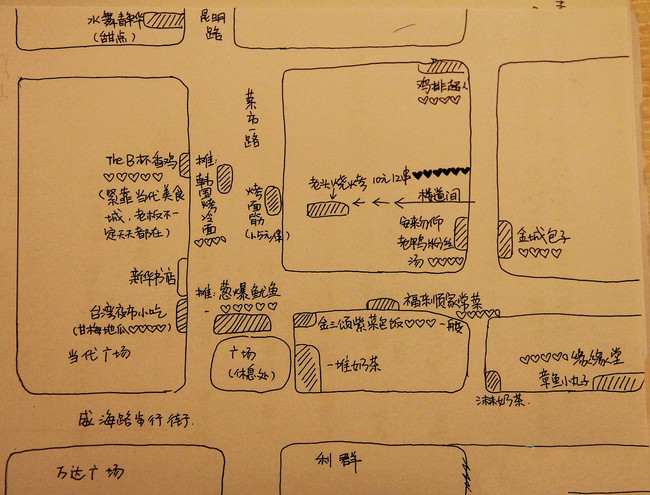 水舞青华
(甜点)
昆明路
菜市一路
鸡排超人
The B杯香鸡
(紧靠当代美食
城,老板不一
定天天都在)
摊:韩国烤冷面
烤面筋
(1.5元/串)
老头烧烤 10元12串
楼道间
安来扬仰
老鸭粉丝
汤
金城包子
新华书店
台湾夜市小吃
(甘梅地瓜
当代广场
摊:葱爆鱿鱼
广场
(休息处)
福来顺家常菜
金三颂紫菜包饭 一般
一堆奶茶
缘缘堂
章鱼小丸子
沐沐奶茶
威海路步行街
万达广场
利群